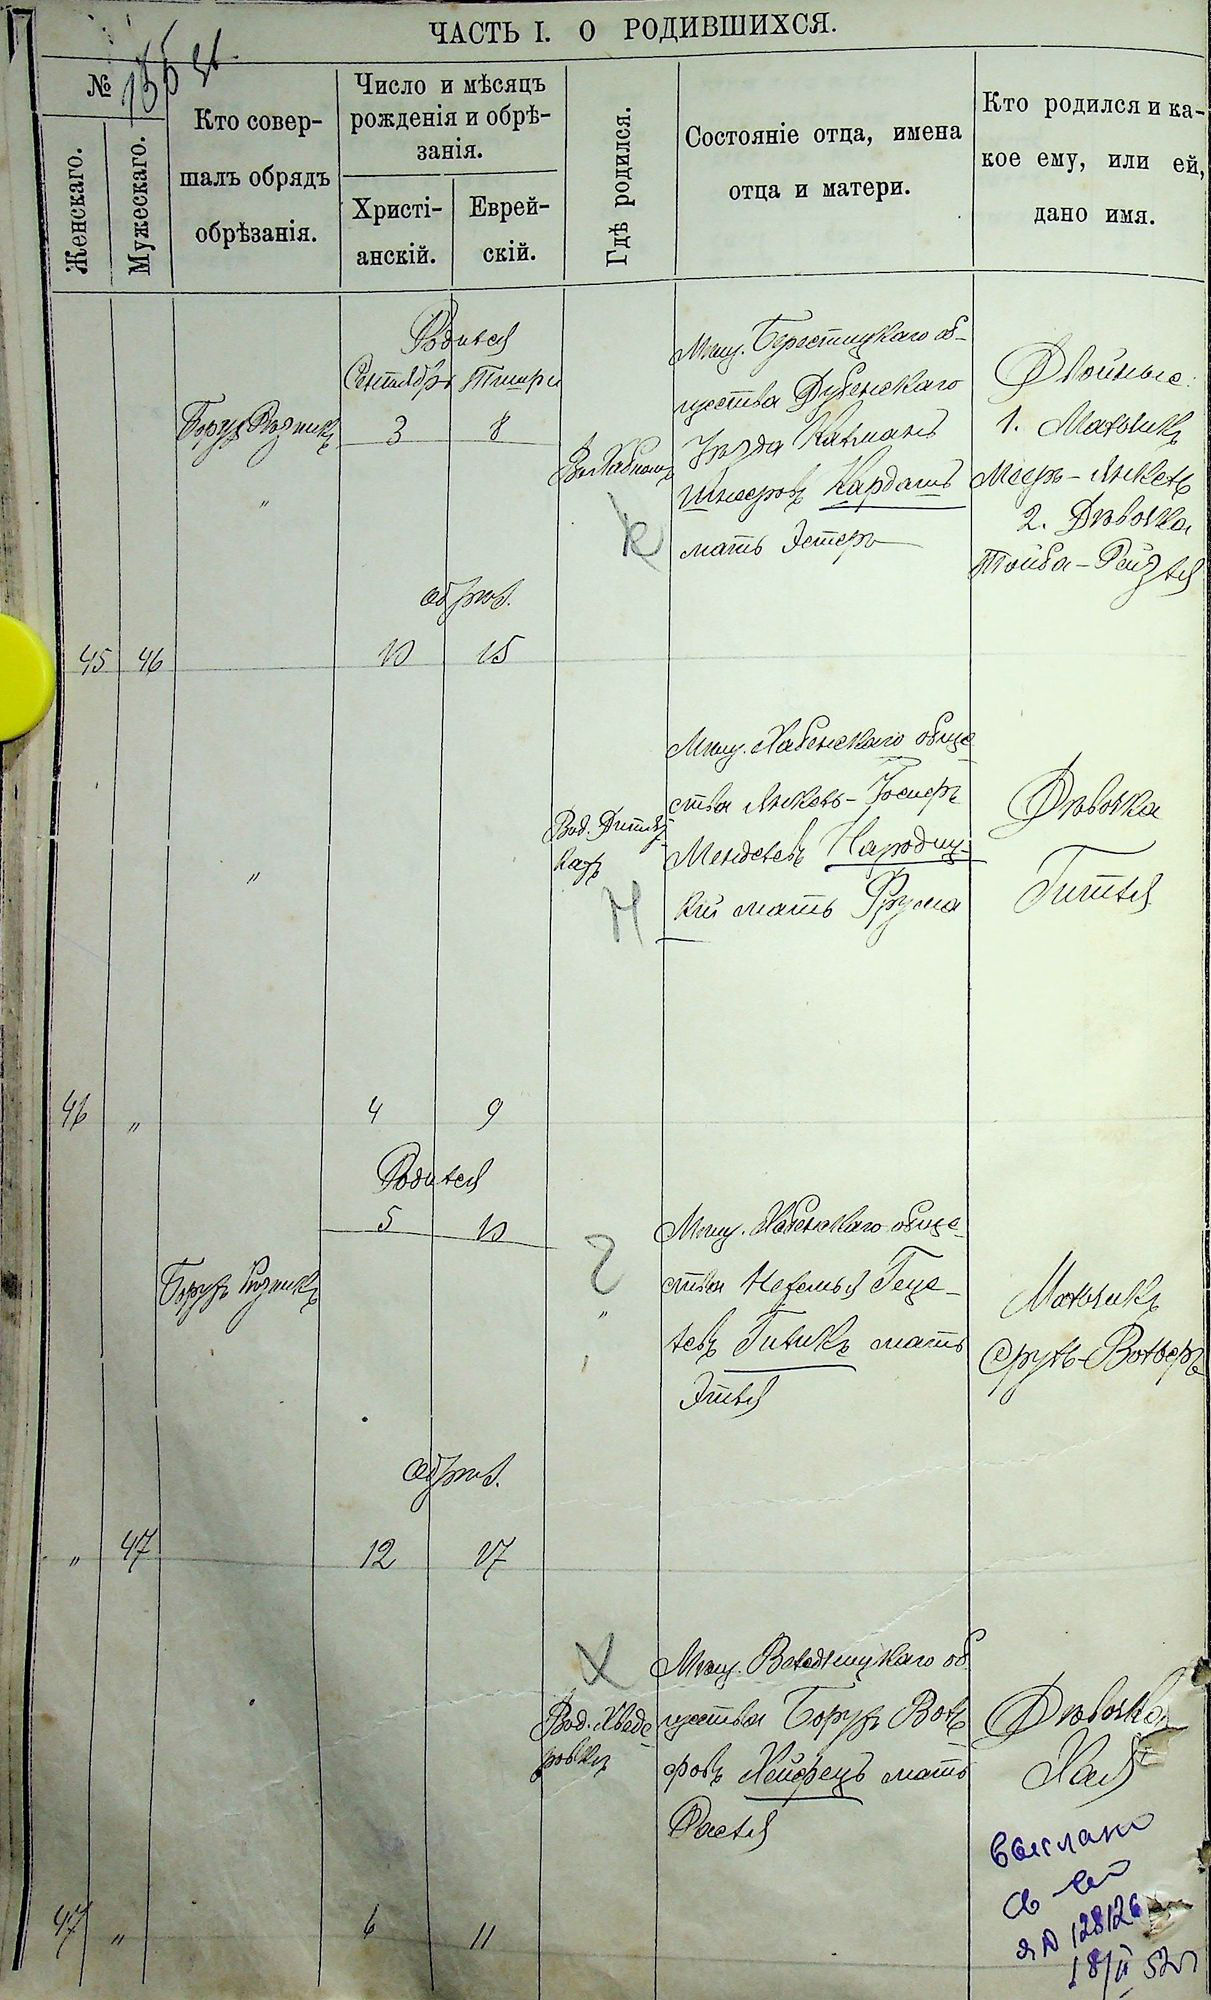 ЧАСТЬ I. О РОДИВШИХСЯ.
№
Женскаго.
Мужескаго.
Кто совер-
шалъ обрядъ
обрѣзанія.
Число и мѣсяцъ
рожденія и обрѣ-
занія.
Христі-
анскій.
Еврей-
скій.
Гдѣ родился.
Состояніе отца, имена
отца и матери.
Кто родился и ка-
кое ему, или ей,
дано имя.
45
46
Борух Резникъ
"
Родился
Сентябрь Тишри
3 8
обрѣз.
10 15
К
Мѣщ. Берестецкаго об-
щества Дубенскаго
Уѣзда Калманъ
Шнееровъ Кардашъ
мать Эстеръ
Двойные:
1. Мальчикъ
Мееръ-Янкель
2. Дѣвочка
Тойба-Рейзля
46
"
"
4 9
Н
Мѣщ. Хабенскаго обще
ства Янкель-Іосифъ
Менделевъ Народиц-
кій мать Фрума
Дѣвочка
Гитля
"
47
Борух Резникъ
Родился
5 10
обрѣз.
12 17
Г
"
Мѣщ. Хабенскаго обще-
ства Нехемья Геце-
левъ Гиликъ мать
Этля
Мальчикъ
Сруль-Вольфъ
47
"
6 11
Х
Мѣщ. об
щества Борух Воль
фовъ Хейфецъ мать
Расля
Дѣвочка
Хая
Выслано
св-во
128126
18/II 52 г